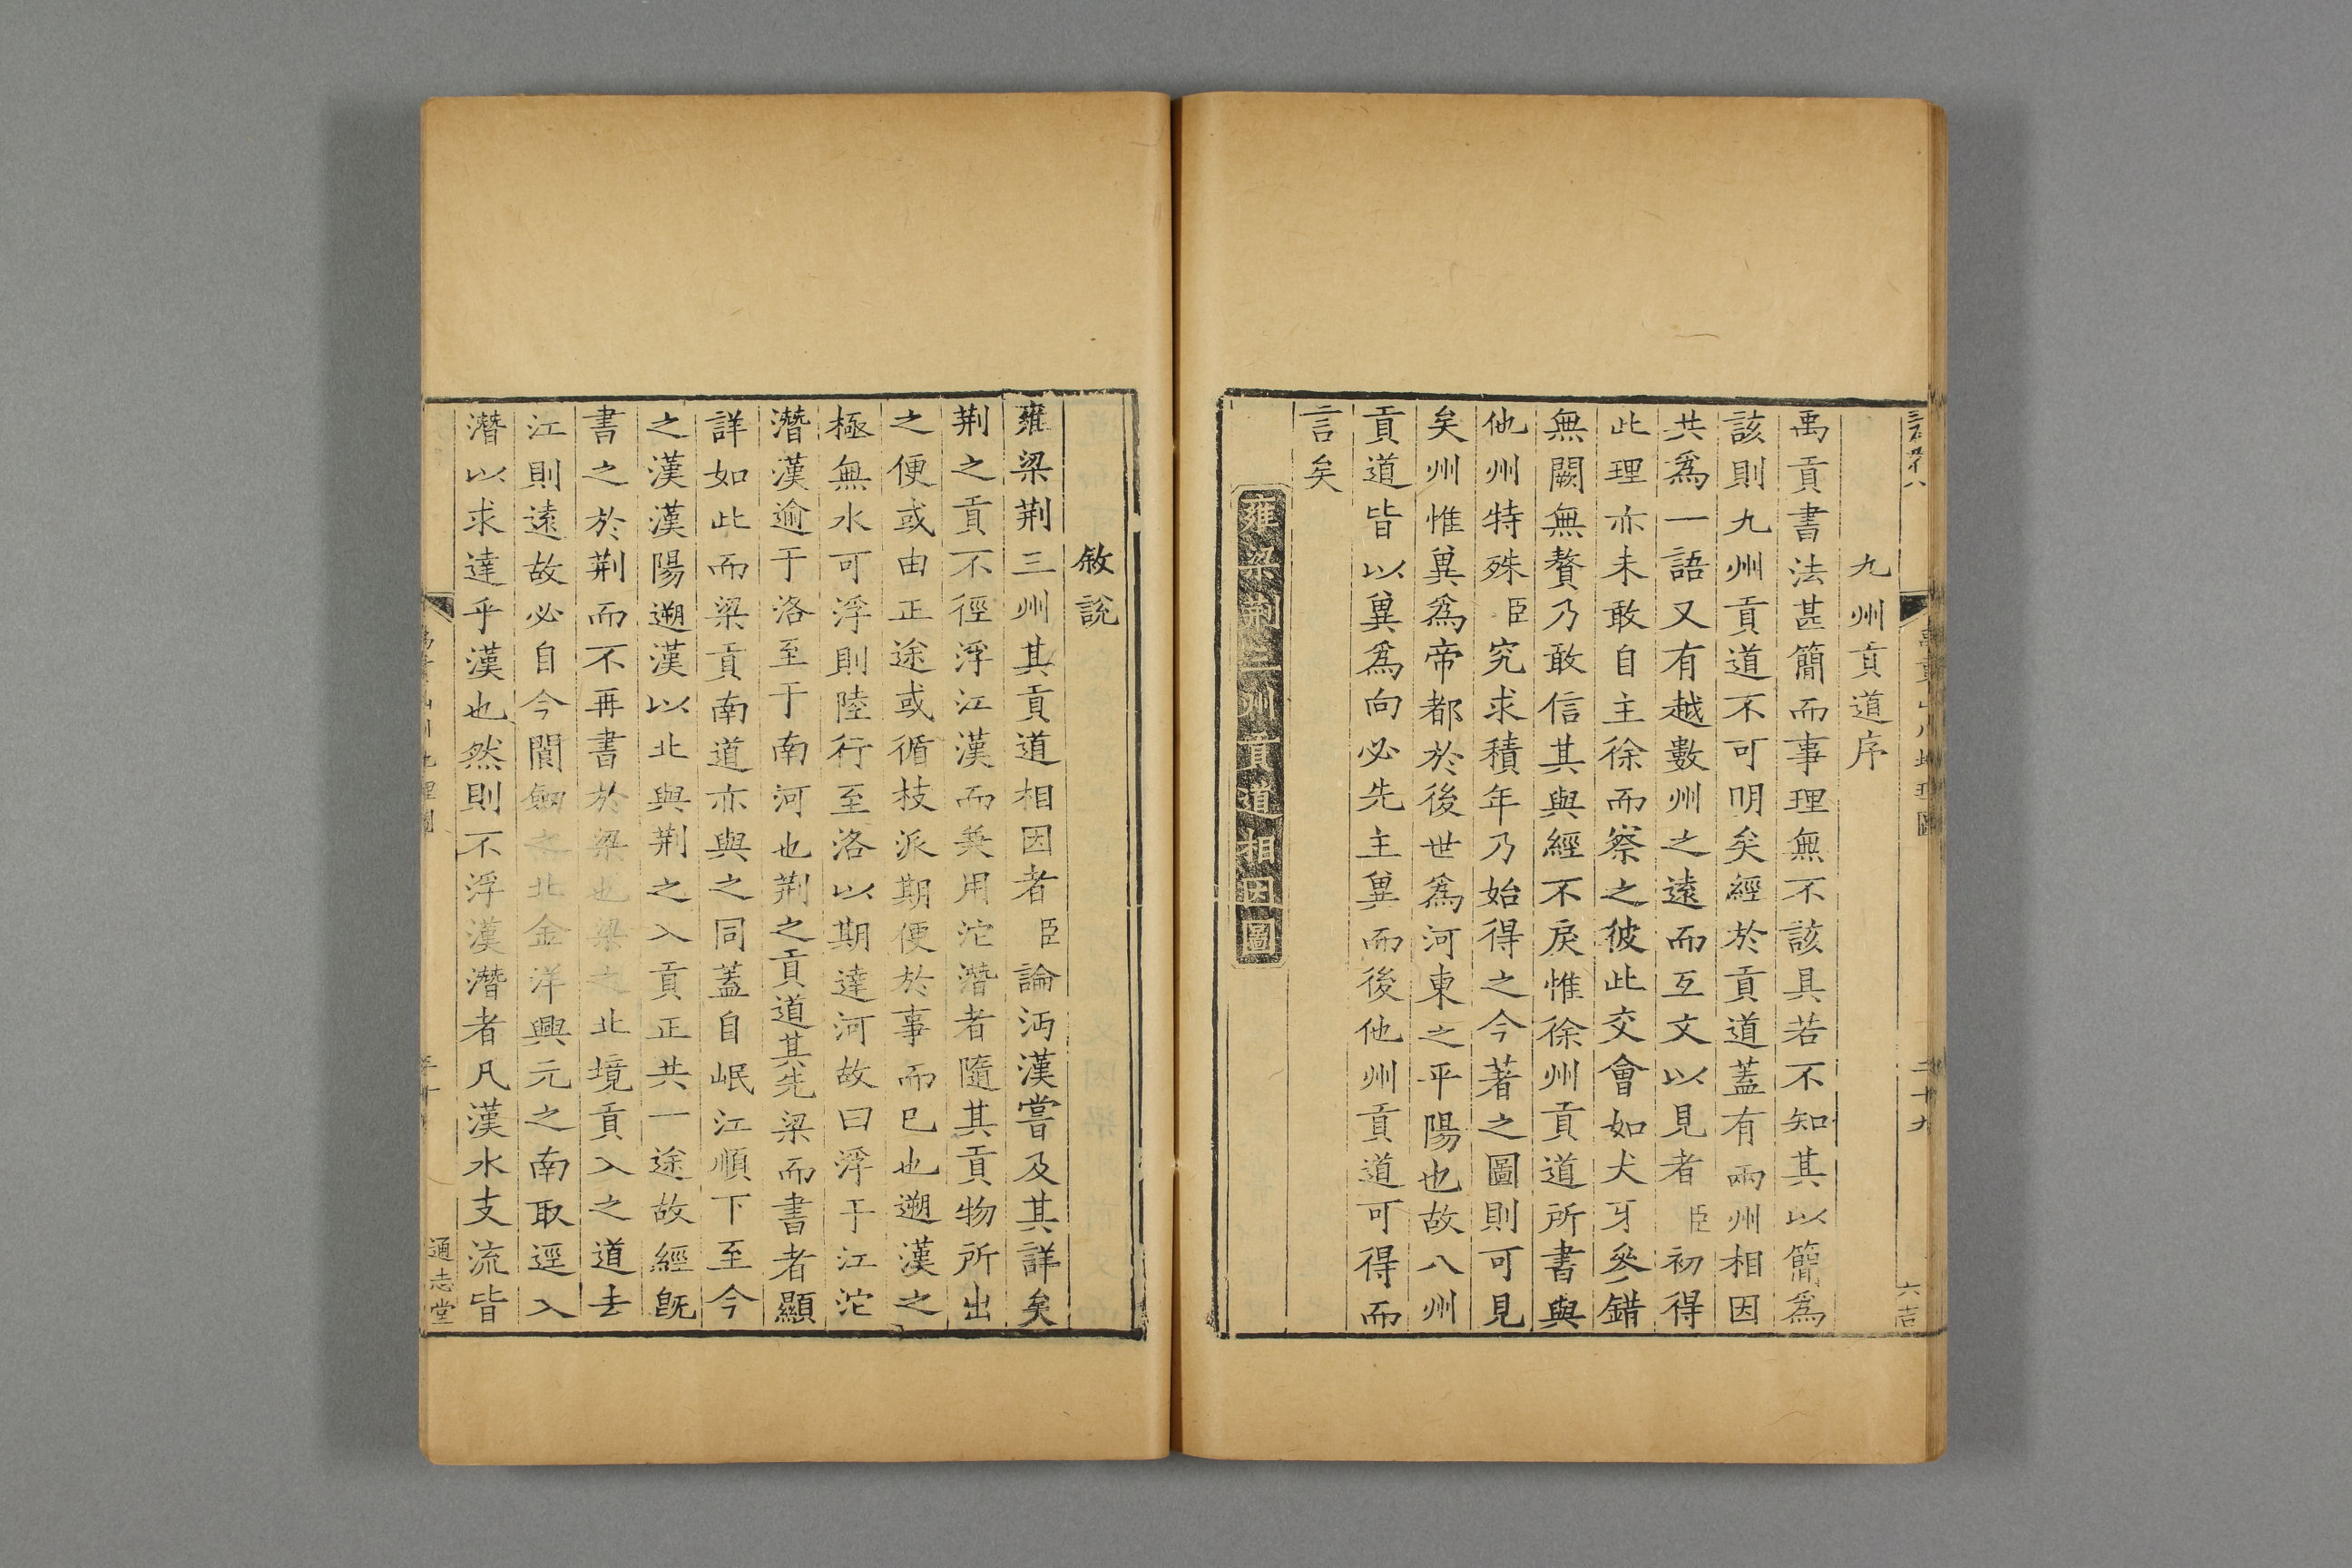 九州貢道序
禹貢書法甚簡而事理無不該具若不知其以簡爲
該則九州貢道不可明矣經於貢道蓋有兩州相因
共爲一語又有越數州之遠而互文以見者臣初得
此理亦未敢自主徐而察之彼此交會如犬牙叅錯
無闕無贅乃敢信其與經不戾惟徐州貢道所書與
他州特殊臣究求積年乃始得之今著之圖則可見
矣州惟兾爲帝都於後世爲河東之平陽也故八州
貢道皆以兾爲向必先主兾而後他州貢道可得而
言矣
雍梁荆三州貢道相因圖
敘說
雍梁荆三州其貢道相因者臣論沔漢嘗及其詳矣
荆之貢不徑浮江漢而兼用沱潛者隨其貢物所出
之便或由正途或循枝派期便於事而已也遡漢之
極無水可浮則陸行至洛以期達河故曰浮于江沱
潛漢逾于洛至于南河也荆之貢道其先梁而書者顯
詳如此而梁貢南道亦與之同蓋自岷江順下至今
之漢漢陽遡漢以北與荆之入貢正共一途故經旣
書之於荆而不再書於梁也梁之北境貢入之道去
江則遠故必自今閬劒之北金洋興元之南取逕入
潛以求達乎漢也然則不浮漢潛者凡漢水支流皆
通志堂